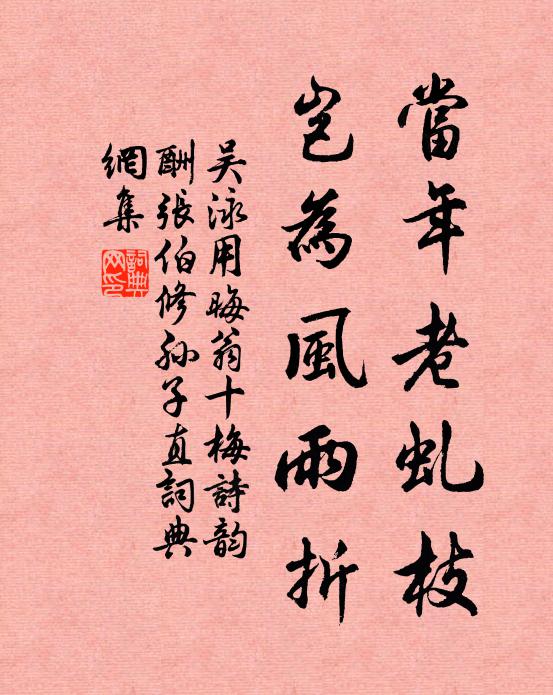 當年老虬枝
豈為風雨折
吴泳用晦翁十梅詩韵
酬張伯修孙子直詞典
網集
詞典网印